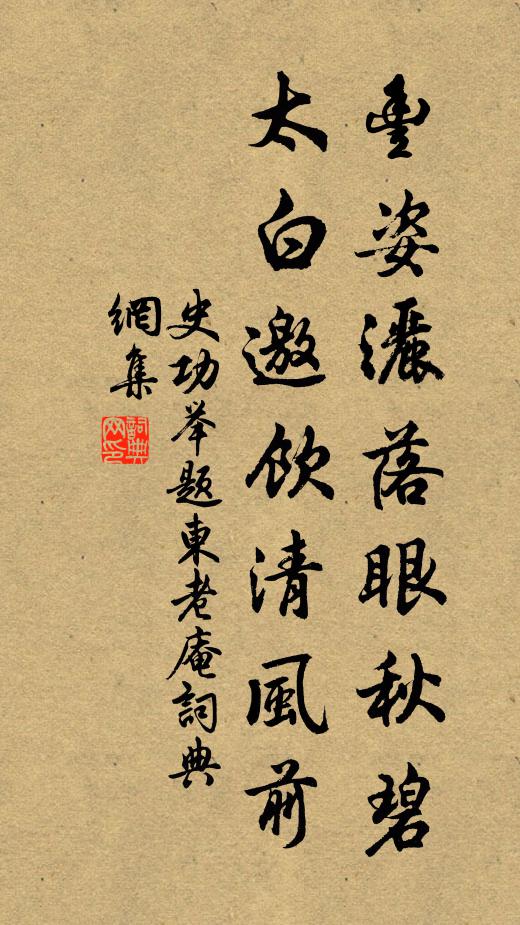 豐姿灑落眼秋碧
太白邀飲清風前
史功举題東老庵詞典
網集
詞典
网印